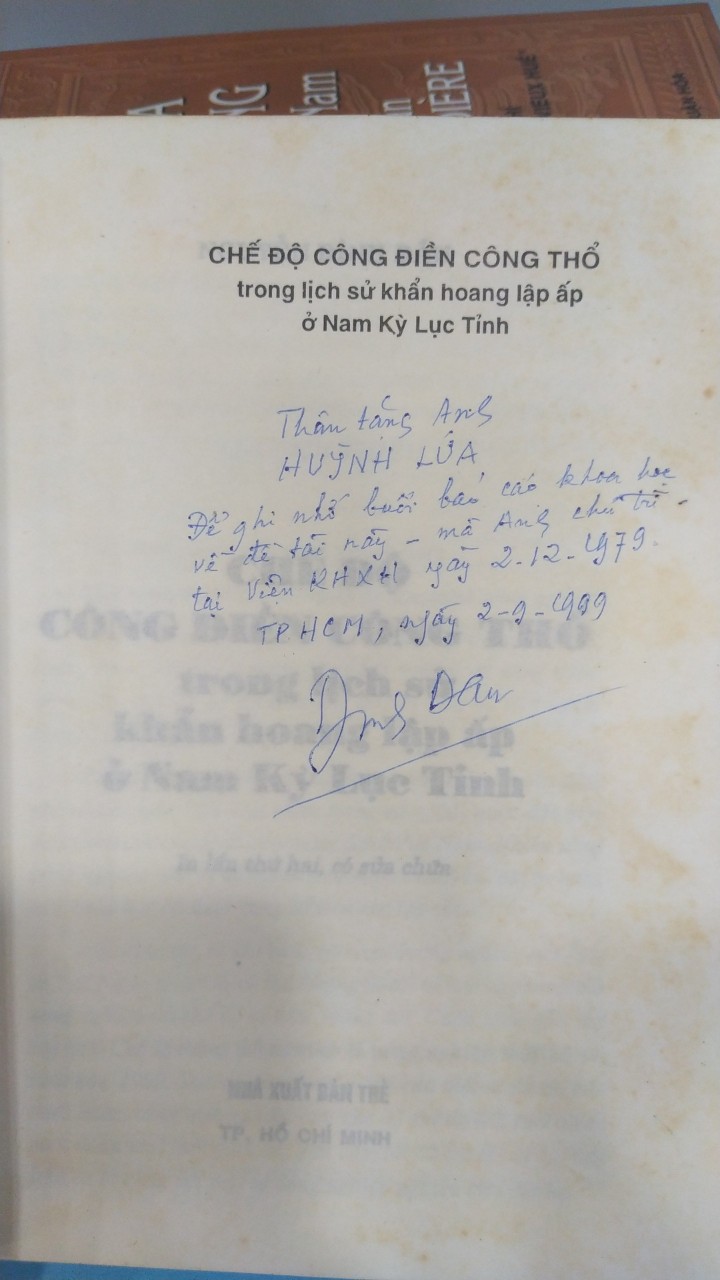 NG
Nam
DIÈRE
VIEUX HUẾ"
CHẾ ĐỘ CÔNG ĐIỀN CÔNG THỔ
trong lịch sử khẩn hoang lập ấp
ở Nam Kỳ Lục Tỉnh
Thân tặng Anh
HUỲNH LỨA
Để ghi nhớ buổi báo cáo khoa học
về đề tài này - mà Anh chủ trì
tại Viện KHXH ngày 2-12-1979.
TP.HCM, ngày 2-9-1999
CÔNG ĐIỀN CÔNG THỔ
trong lịch sử
khẩn hoang lập ấp
ở Nam Kỳ Lục Tỉnh
In lần thứ hai, có sửa chữa
NHÀ XUẤT BẢN TRẺ
TP. HỒ CHÍ MINH